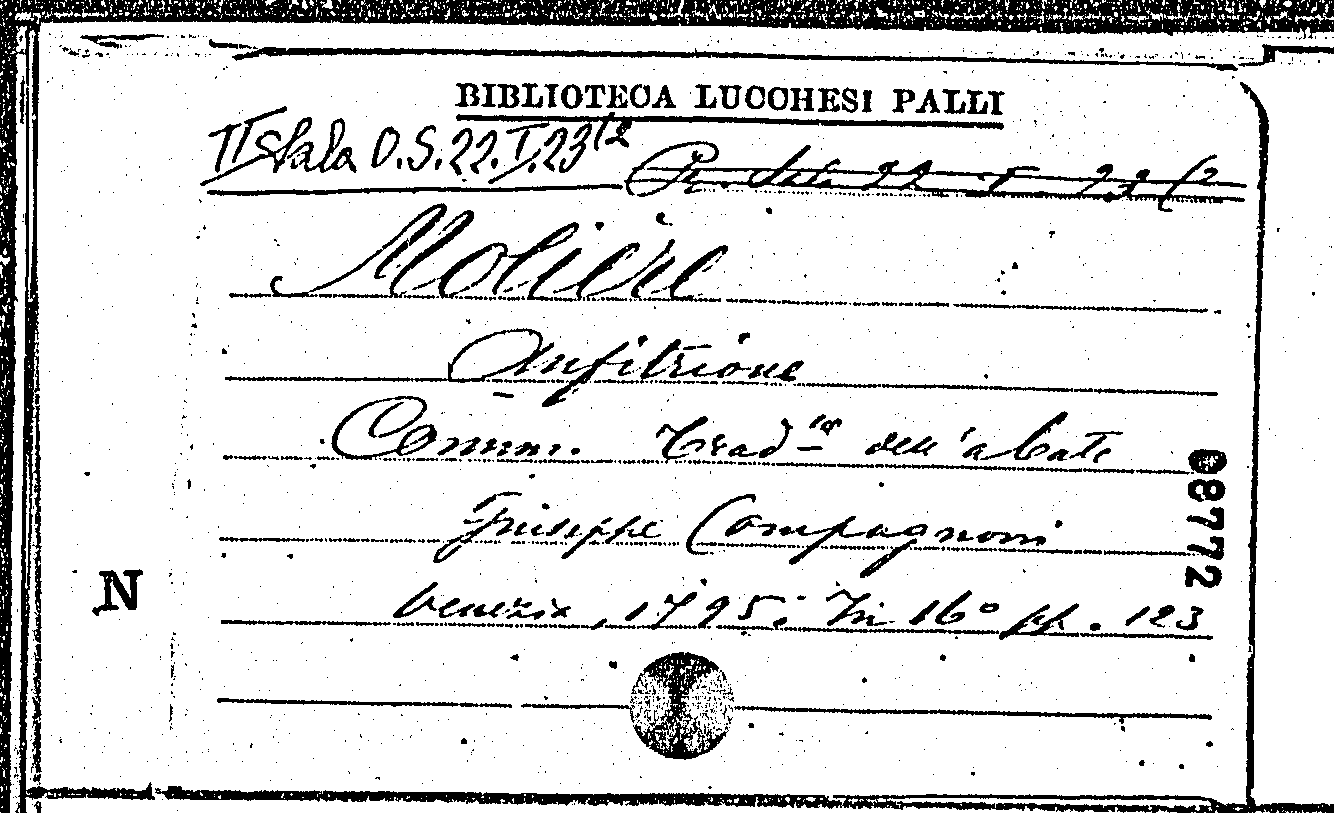 BIBLIOTECA LUCCHESI PALLI
II Sala O.S.22.I.23/2
Pr. Sala 22 I 23/2
Molière
Anfitrione
Comm. Trad.ne dell'abate
Giuseppe Compagnoni
Venezia, 1795. In 16° pp. 123
08772
N